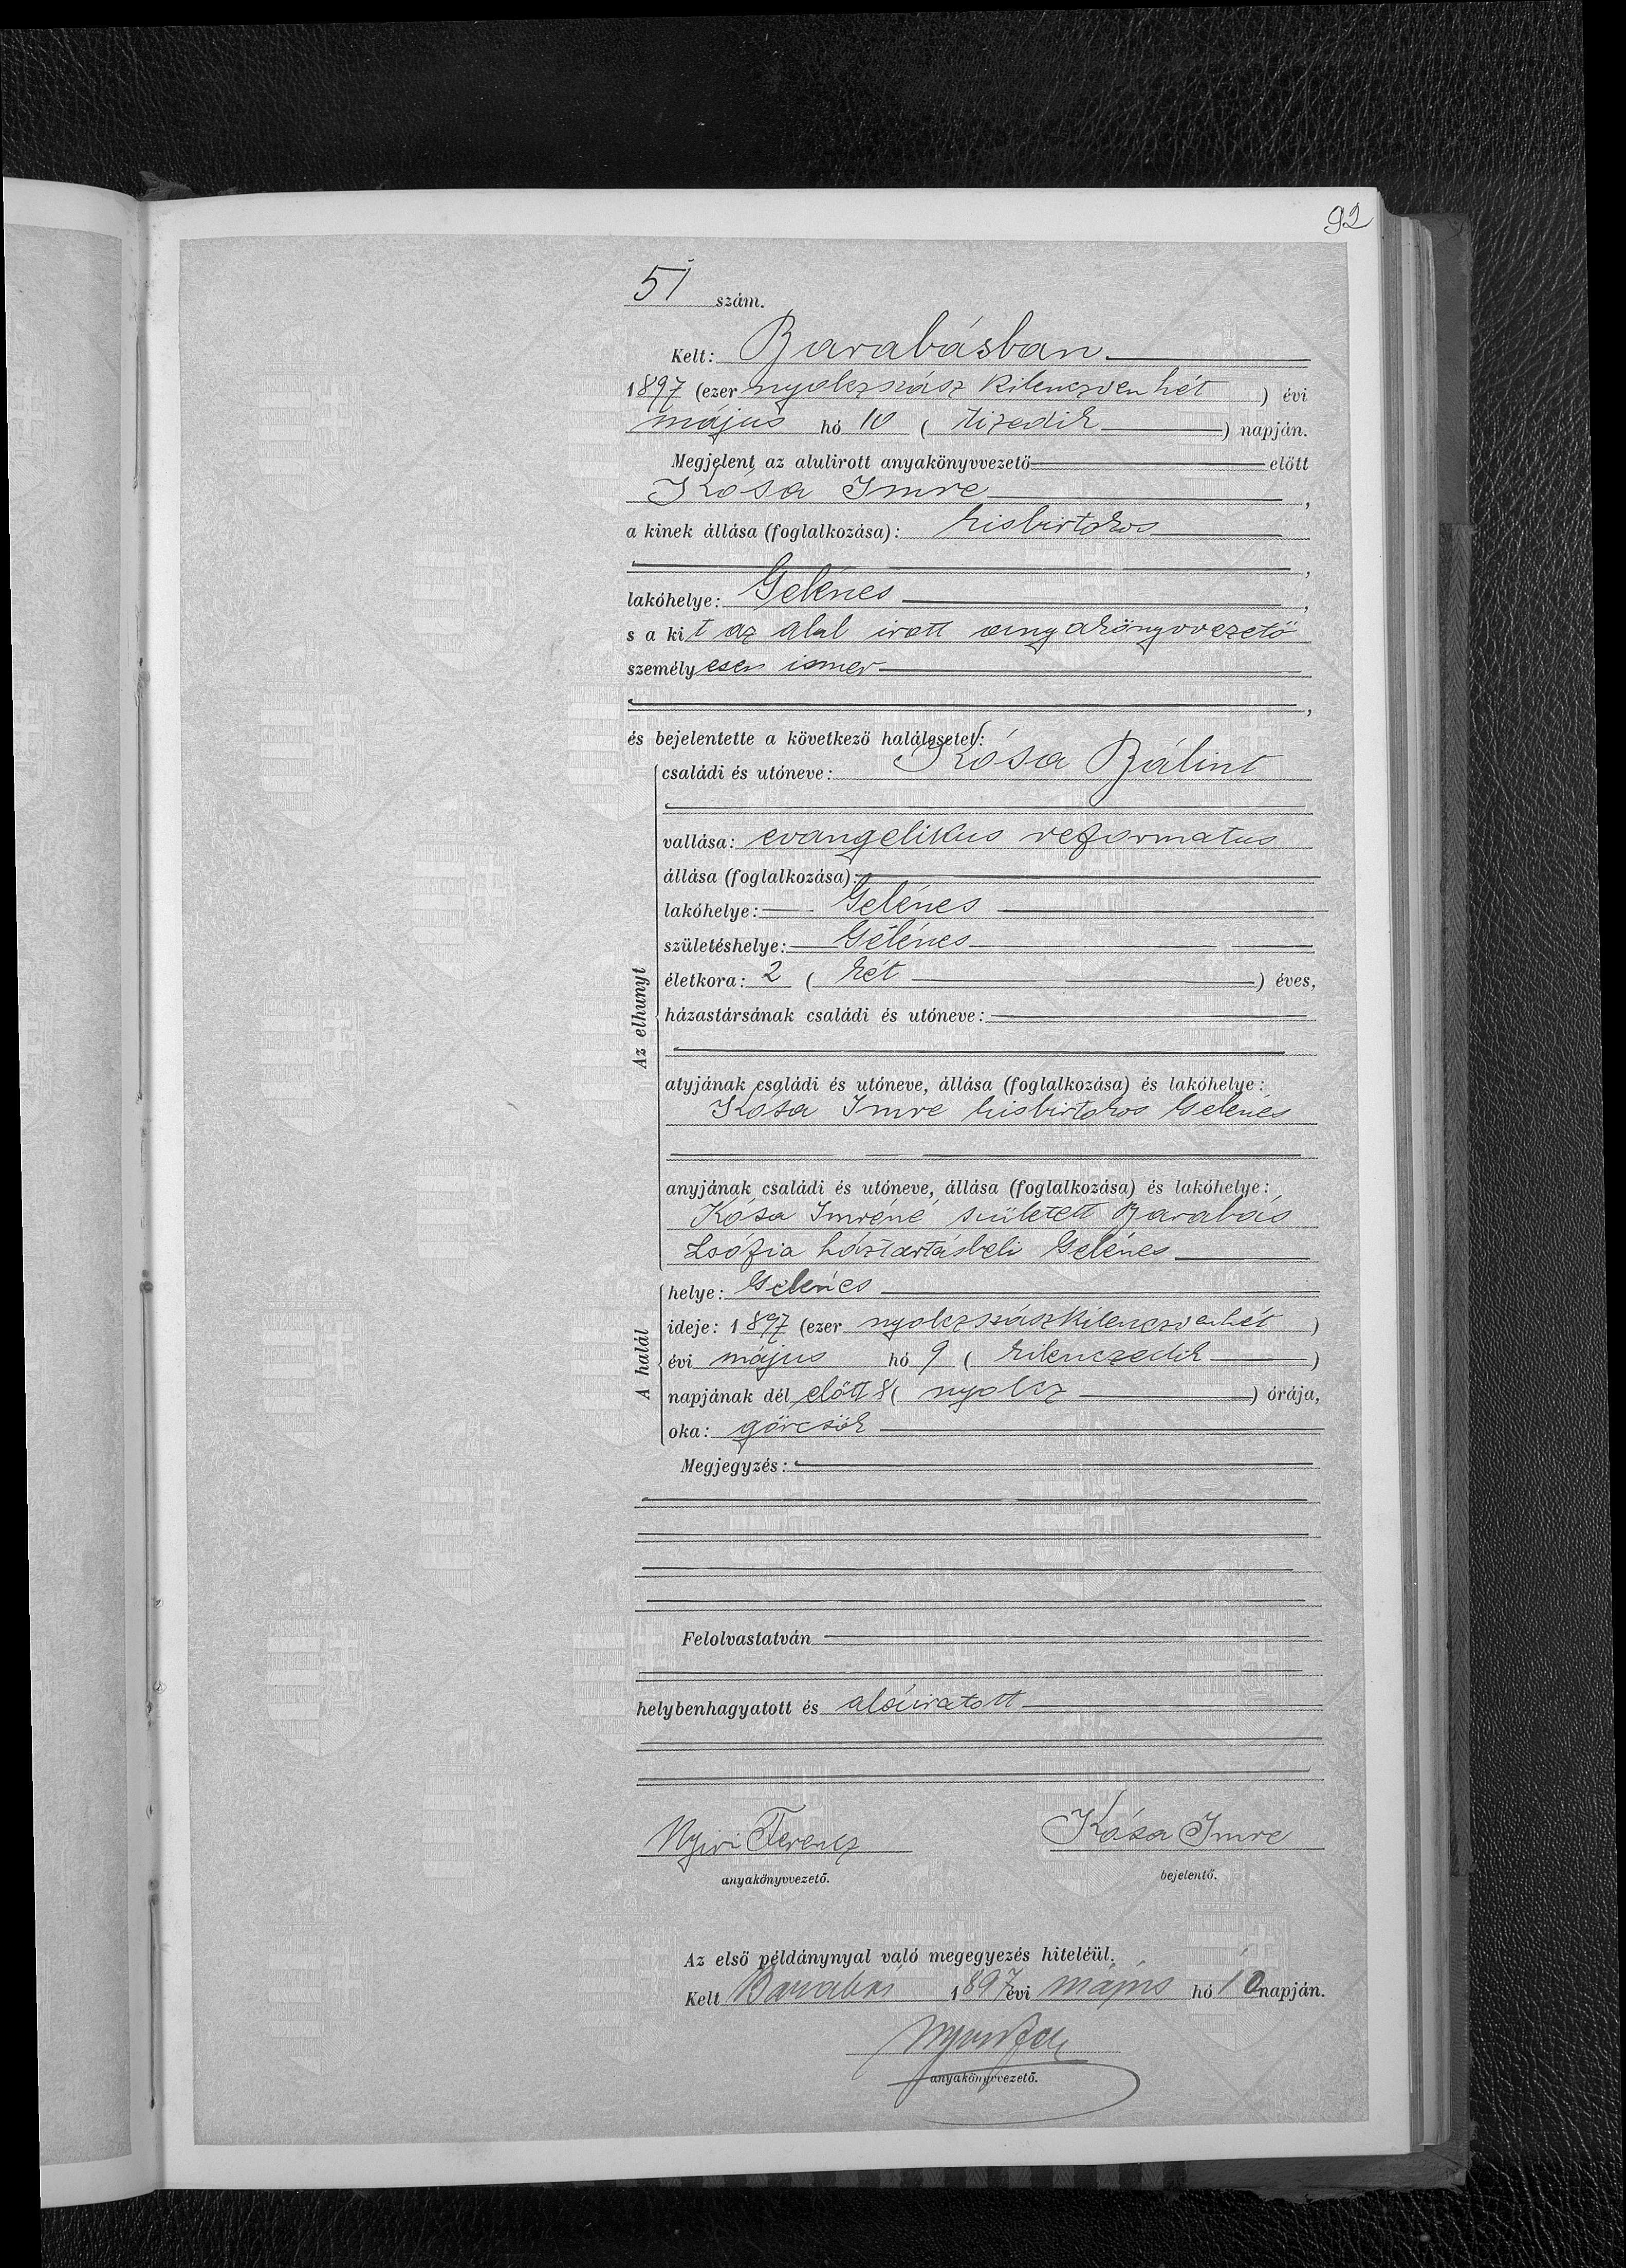 92
51 szám.
Kelt: Barabásban
1897 (ezer nyolczszász kilenczven hét ) évi
május hó 10 ( tizedik ) napján.
Megjelent az alulirott anyakönyvvezető előtt
Kósa Imre ,
a kinek állása (foglalkozása): kisbirtokos
,
lakóhelye: Gelénes ,
s a kit az alul irott anyakönyvvezető
személyesen ismer
,
és bejelentette a következő halálesetet:
családi és utóneve: Kósa Bálint
vallása: evangelikus reformatus
állása (foglalkozása):
lakóhelye: Gelénes
születéshelye: Gelénes
életkora: 2 ( két ) éves,
házastársának családi és utóneve:
Az elhunyt
atyjának családi és utóneve, állása (foglalkozása) és lakóhelye:
Kósa Imre kisbirtokos Gelenés
anyjának családi és utóneve, állása (foglalkozása) és lakóhelye:
Kósa Imréné született Barabás
Zsófia háztartásbeli Gelénes
helye: Gelénes
ideje: 1897 (ezer nyolczszászkilenczvenhét )
A halál
évi május hó 9 ( kilenczedik )
napjának dél előtt 8 ( nyolcz ) órája,
oka: görcsök
Megjegyzés:
Felolvastatván
helybenhagyatott és aláiratott
Nyiri Ferencz Kósa Imre
anyakönyvvezető. bejelentő.
Az első példánynyal való megegyezés hiteléül.
Kelt Barabás 1897 évi május hó 10 napján.
anyakönyvvezető.